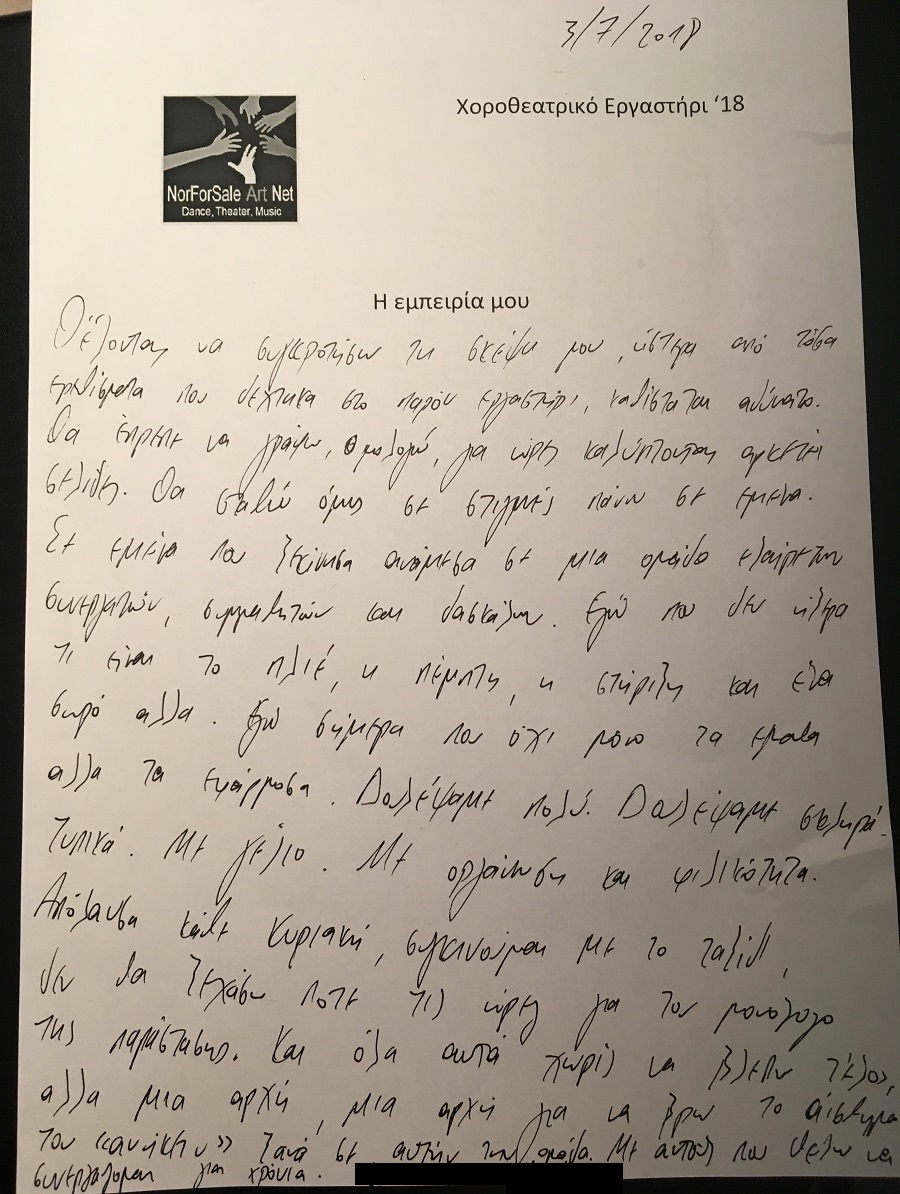 3/7/2018
Χοροθεατρικό Εργαστήρι ‘18
NorForSale Art Net
Dance, Theater, Music
Η εμπειρία μου
Θέλοντας να συγκροτήσω τη σκέψη μου, ύστερα από τόσα
ερεθίσματα που δέχτηκα στο παρόν εργαστήρι, καθίσταται αδύνατο.
Θα έπρεπε να γράφω, ομολογώ, για ώρες καλύπτοντας αρκετές
σελίδες. Θα σταθώ όμως σε στιγμές πάνω σε εμένα.
Σε εμένα που ξεκίνησα ανάμεσα σε μια ομάδα εξαίρετων
συνεργατών, συμμαθητών και δασκάλων. Εγώ που δεν ήξερα
τι είναι το πλιέ, η πέμπτη, η στήριξη και ένα
σωρό αλλα. Εγώ σήμερα που όχι μονο τα εμαθα
αλλα τα εφάρμοσα. Δουλέψαμε πολύ. Δουλέψαμε σκληρά.
Τυπικά. Με γέλιο. Με οργάνωση και φιλικότητα.
Απόλαυσα κάθε Κυριακή, συγκινούμαι με το ταξίδι,
δεν θα ξεχάσω ποτε τις ώρες για τον μονόλογο
της παράστασης. Και όλα αυτά χωρίς να βλεπω τέλος,
αλλα μια αρχή, μια αρχή για να βρω το αίσθημα
του «ανήκειν» ξανά σε αυτήν την ομάδα. Με αυτούς που θελω να
συνεργάζομαι για χρόνια.